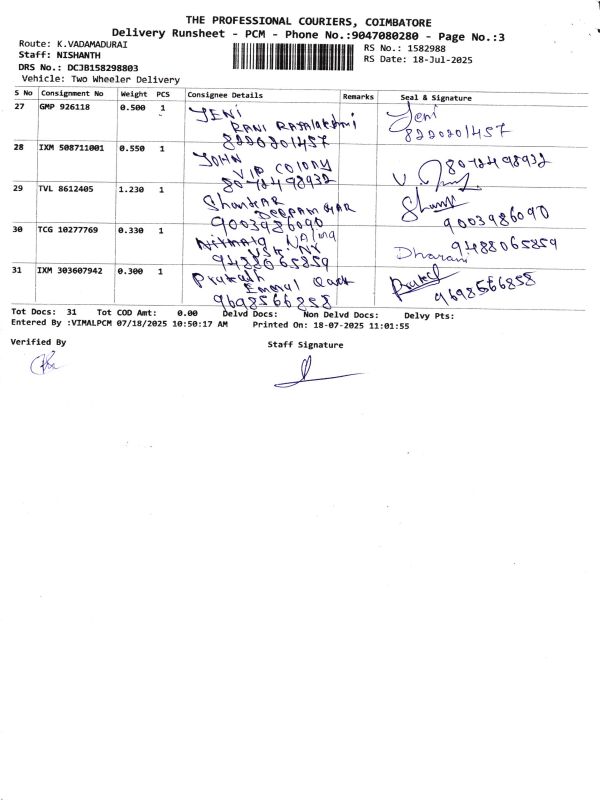 THE PROFESSIONAL COURIERS, COIMBATORE
Delivery Runsheet - PCM - Phone No.:9047080280 - Page No.:3
Route: K.VADAMADURAI
RS No.: 1582988
Staff: NISHANTH
RS Date: 18-Jul-2025
DRS No.: DCJB158298803
Vehicle: Two Wheeler Delivery
S No Consignment No Weight PCS Consignee Details Remarks Seal & Signature
27 GMP 926118 0.500 1 JENI Jeni
RANI RAJALAKSHMI
8220201457 8220201457
28 IXM 508711001 0.550 1 JOHN
VIP COLONY
8072498932 8072498932
29 TVL 8612405 1.230 1 Shankar
9003986090 9003986090
30 TCG 10277769 0.330 1 Dharani
9488065859 9488065859
31 IXM 303607942 0.300 1 Prakash
9698566858 9698566858
Tot Docs: 31 Tot COD Amt: 0.00 Delvd Docs: Non Delvd Docs: Delvy Pts:
Entered By :VIMALPCM 07/18/2025 10:50:17 AM Printed On: 18-07-2025 11:01:55
Verified By
Staff Signature